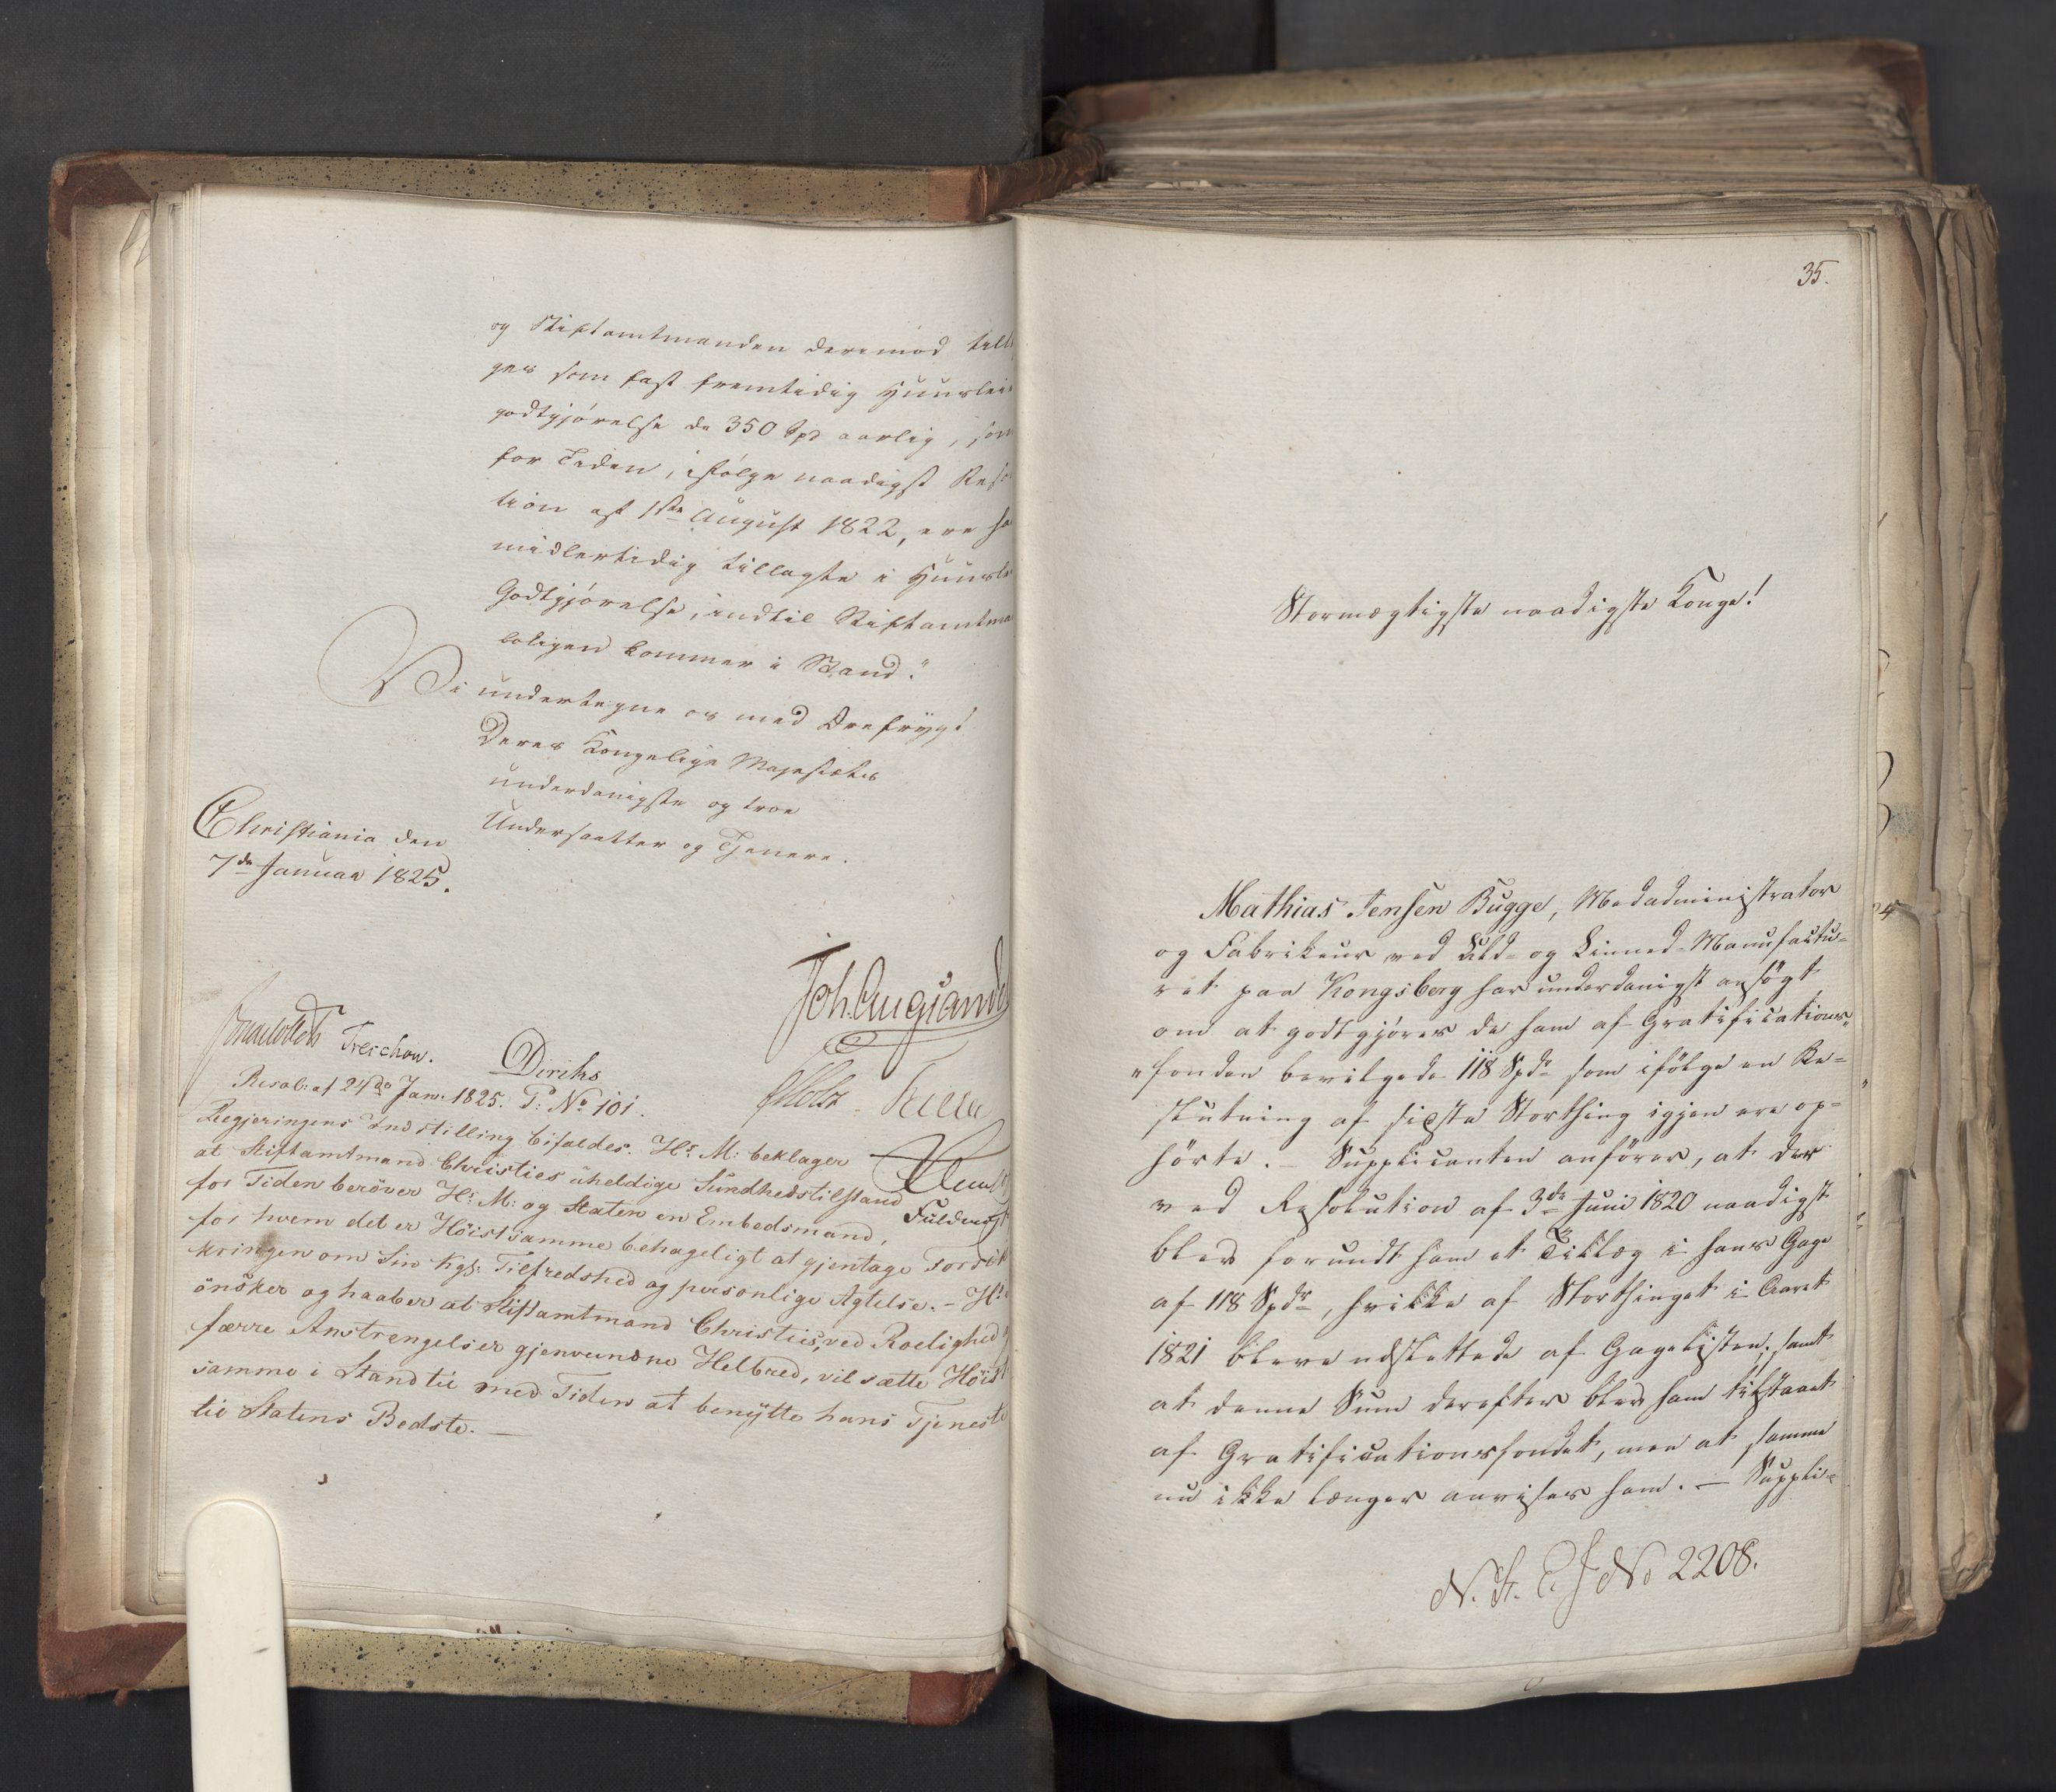 og Stiftamtmanden derimod till
ges som fast fremtidig Huuslei
godtgjörelse de 350 Spd aarlig, som
for Tiden, ifölge naadigst Reso
tion af 1ste August 1822, ere ha
midlertidig tillagte i Huusle
Godtgjörelse, indtil Stiftamtma
boligen kommer i Stand."
Vi undertegne os med Ærefrygt
Deres Kongelige Majestæts
underdanigste og troe
Undersaatter og Tjenere.
Christiania den
7de Januar 1825.
Joh. Aug. Sande
Treschow.
Diriks
Fuldmægt
Resol: af 24de Jan: 1825. P: No 101.
Regjeringens Indstilling bifaldes. Hs M: beklager
at Stiftamtmand Christies uheldige Sundhedstilstand
for Tiden beröver Hs M: og Staten en Embedsmand,
for hvem det er Höistsamme behageligt at gjentage Forsik
kringen om Sin Kgl: Tilfredshed og personlige Agtelse. - Hs
önsker og haaber at Stiftamtmand Christies, ved Roelighed
færre Anstrengelser gjenvundne Helbred, vil sætte Höist
samme i Stand til med Tiden at benÿtte hans Tjeneste
til Statens Bedste. —
35.
Stormægtigste naadigste Konge!
Mathias Jensen Bugge, Medadministrator
og Fabrikeur ved Uld- og Linned-Manufactu-
ret paa Kongsberg har underdanigst ansögt
om at godtgjöres de ham af Gratifications-
"fonden bevilgede 118 Spdr som ifölge en Be-
slutning af sidste Storthing igjen ere op-
hörte. - Supplicanten anförer, at der
ved Resolution af 3de Juni 1820 naadigst
blev forundt ham et Tillæg i hans Gage
af 118 Spdr, hvilke af Storthinget i Aaret
1821 bleve udslettede af Gagelisten, samt
at denne Sum derefter blev ham tilstaaet
af Gratificationsfondet, men at samme
nu ikke længer anvises ham. — Suppli-
No 2208.